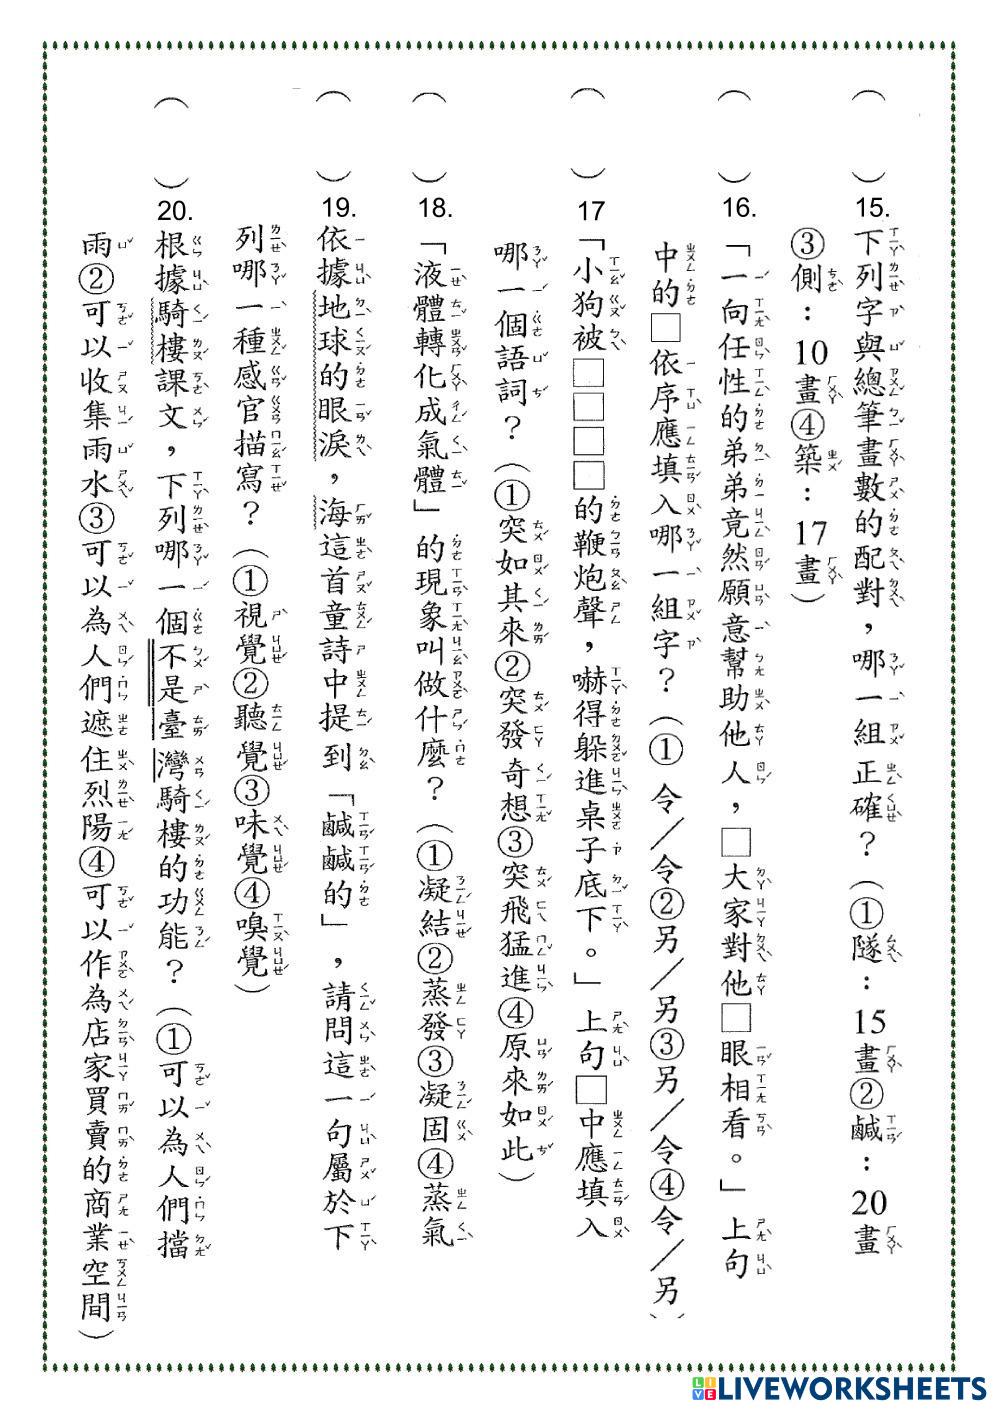 (　)15.下列字與總筆畫數的配對，哪一組正確？(①隧：15畫②鹹：20畫
③側：10畫④築：17畫)
(　)16.「一向任性的弟弟竟然願意幫助他人，□大家對他□眼相看。」上句
中的□依序應填入哪一組字？(①令／令②另／另③另／令④令／另)
(　)17「小狗被□□□□的鞭炮聲，嚇得躲進桌子底下。」上句□中應填入
哪一個語詞？(①突如其來②突發奇想③突飛猛進④原來如此)
(　)18.「液體轉化成氣體」的現象叫做什麼？(①凝結②蒸發③凝固④蒸氣
(　)19.依據地球的眼淚，海這首童詩中提到「鹹鹹的」，請問這一句屬於下
列哪一種感官描寫？(①視覺②聽覺③味覺④嗅覺)
(　)20.根據騎樓課文，下列哪一個不是臺灣騎樓的功能？(①可以為人們擋
雨②可以收集雨水③可以為人們遮住烈陽④可以作為店家買賣的商業空間)
LIVEWORKSHEETS